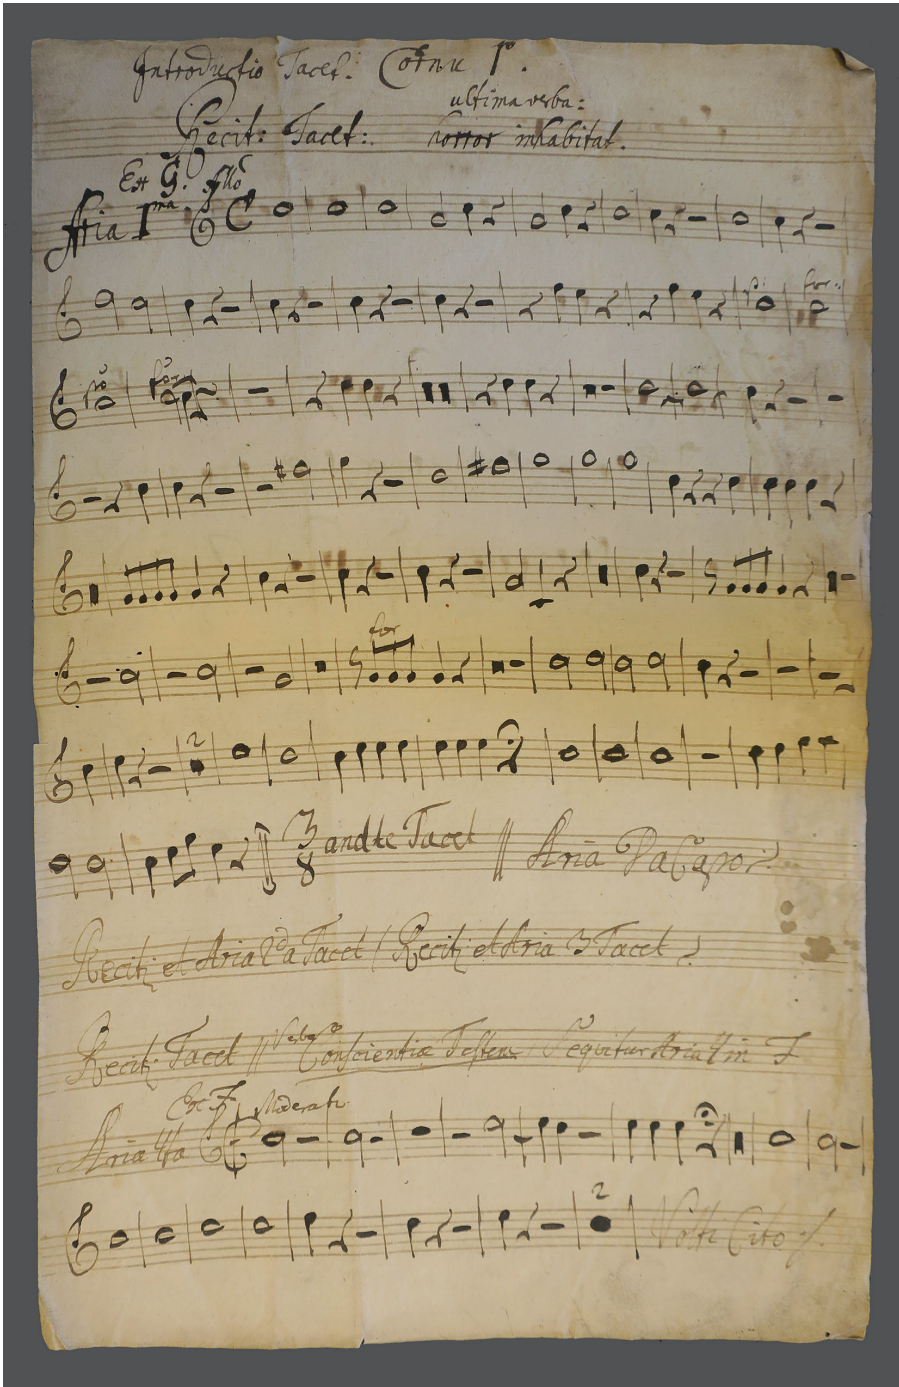 Introductio Tacet. Cornu I°.
ultima verba:
Recit: Tacet: horror inhabitat.
Ex G. Allo
Aria I ma
for:
for
2
3/8 andte Tacet Aria Da Capo
Recit: et Aria 2da Tacet Recit: et Aria 3 Tacet
Recit: Tacet Verba Conscientiae Sequitur Aria 4 in F
Ex F. Moderato
Aria 4ta
2
Volti Cito